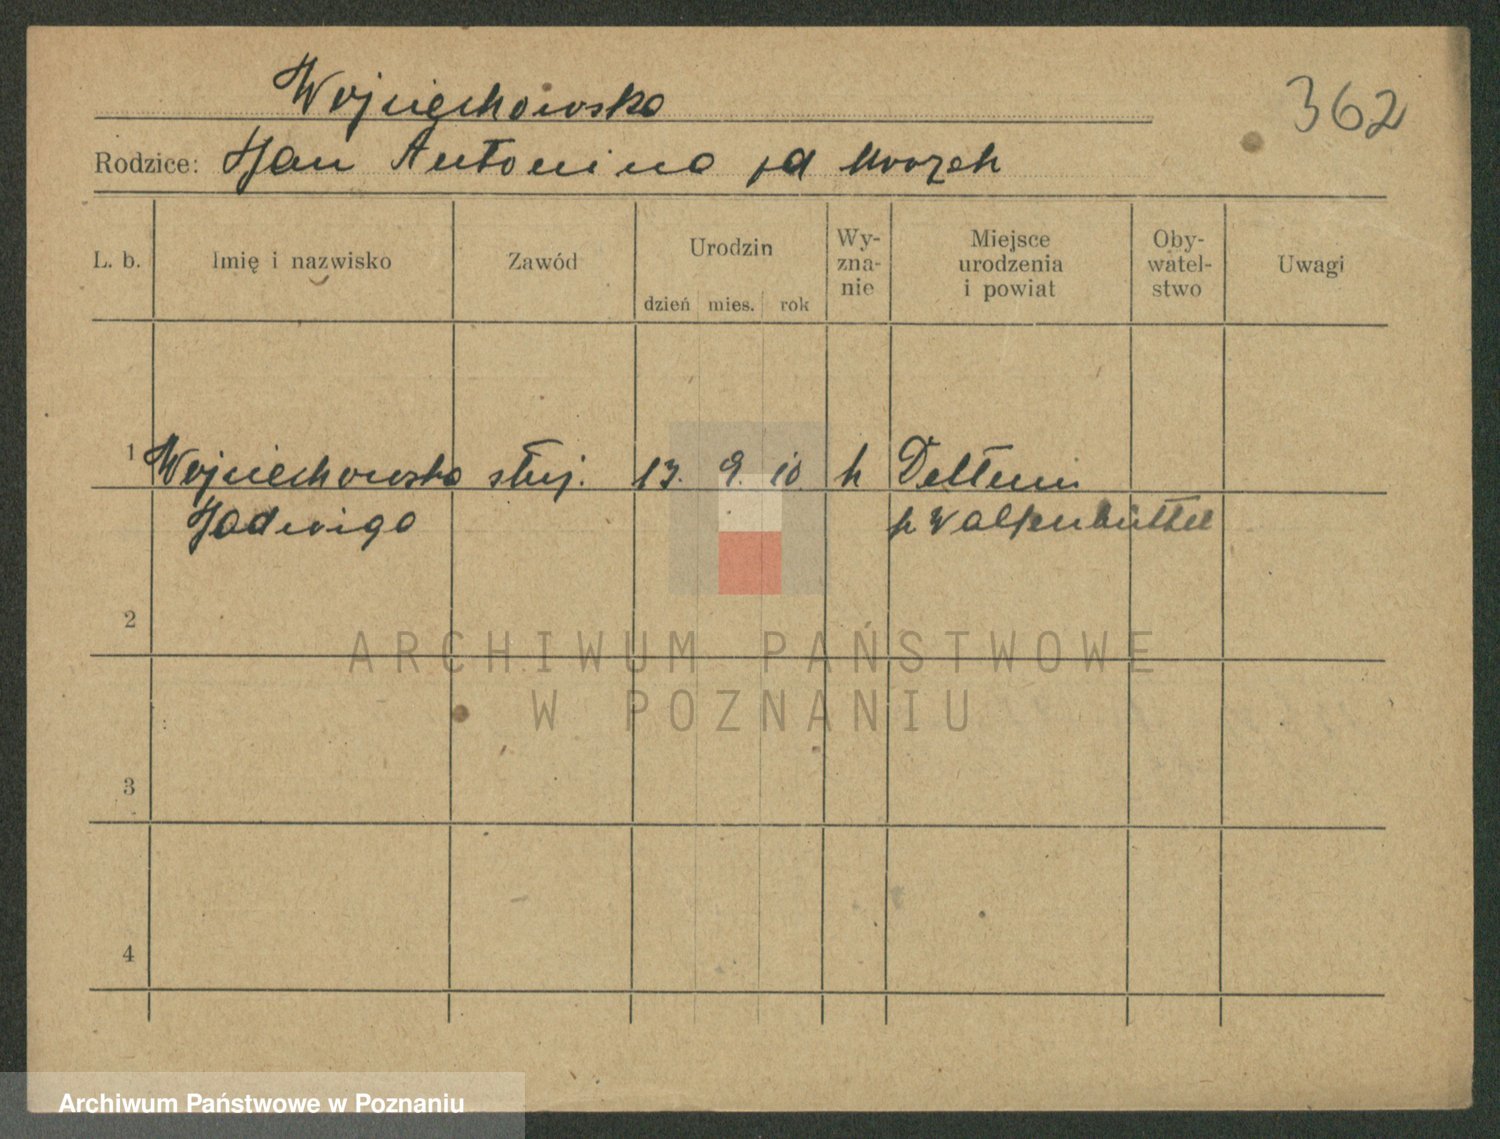 Wojciechowska
362
Rodzice: Jan Antonina
L. b.
Imię i nazwisko
Zawód
Urodzin
dzień mies. rok
Wy-
zna-
nie
Miejsce
urodzenia
i powiat
Oby-
watel-
stwo
Uwagi
1 Wojciechowska służ. 13. 9. 10 k
Jadwiga
p Wolfenbüttel
2
3
4
ARCHIWUM PAŃSTWOWE
W POZNANIU
Archiwum Państwowe w Poznaniu